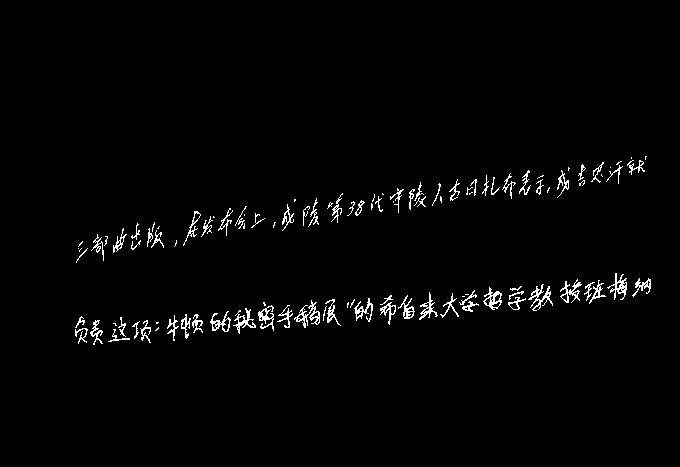 三部曲出版,在发布会上,成陵第38代守陵人古日扎布表示,成吉思汗就
负责这项:牛顿的秘密手稿展"的希伯来大学哲学教授班梅纳